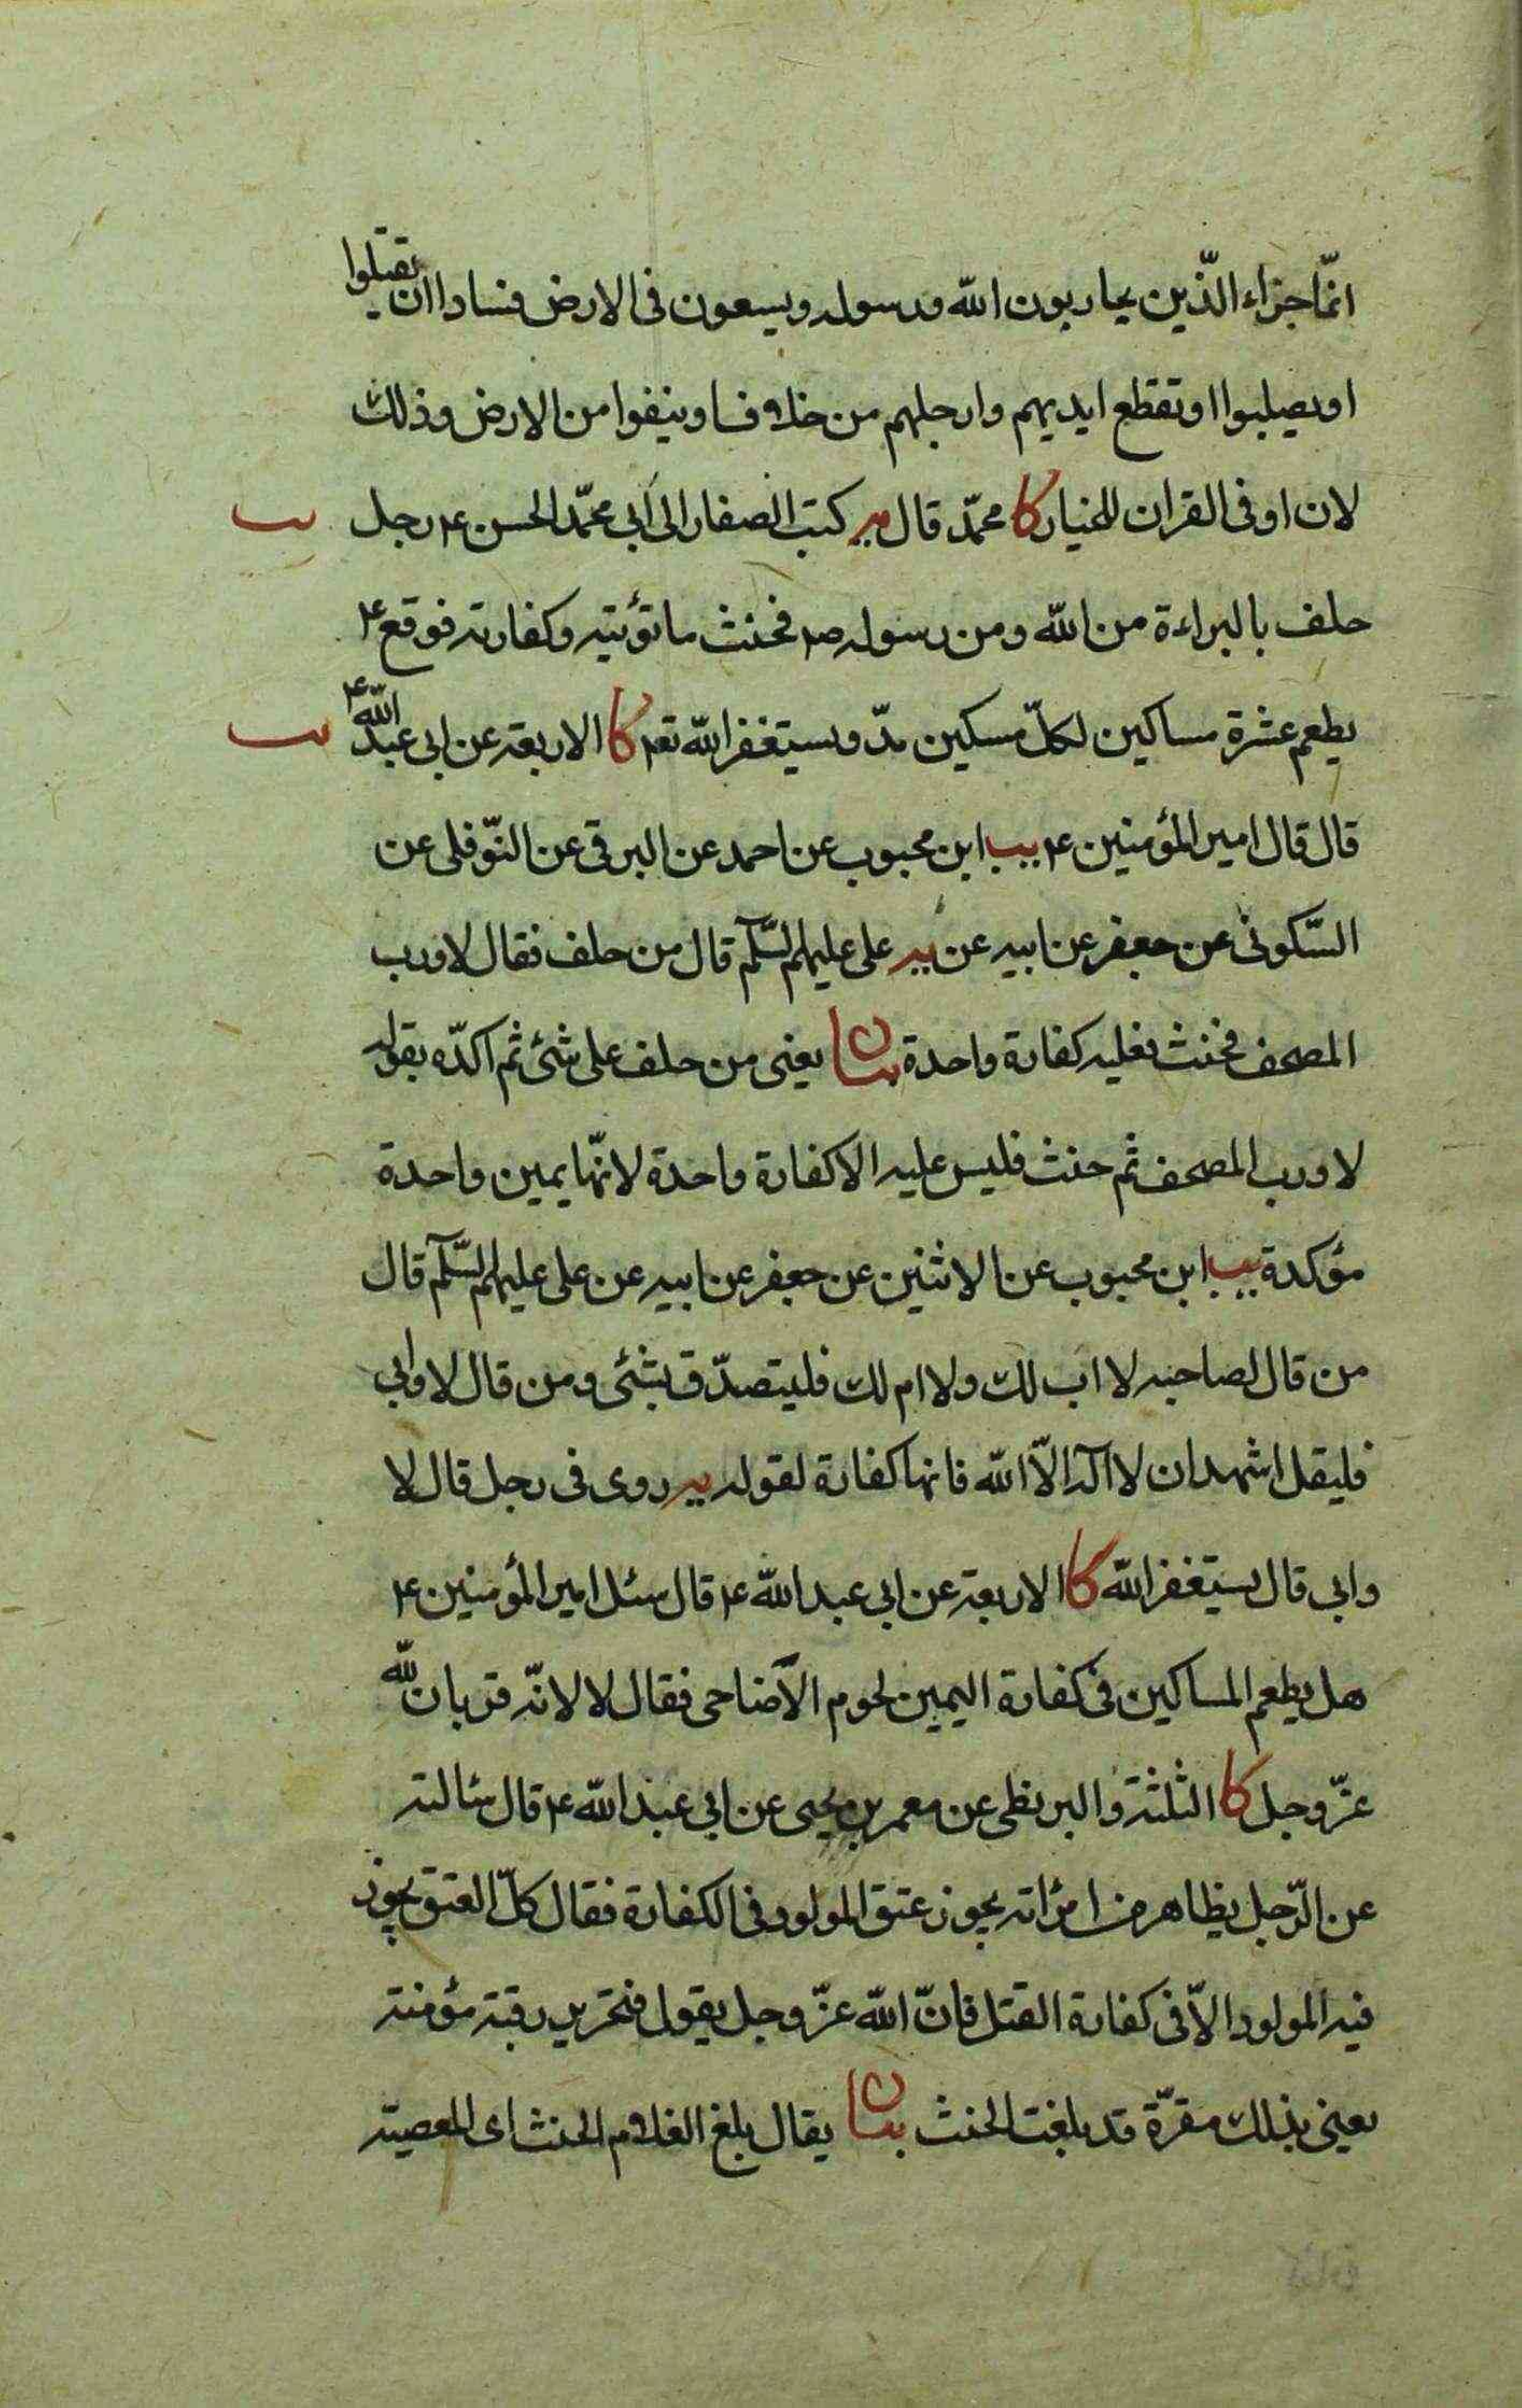 انمّا جزاء الّذين يحاربون الله ورسوله ويسعون فى الارض فسادا ان يقتلوا
او يصلبوا او تقطع ايديهم وارجلهم من خلاف او ينفوا من الارض وذلك
لان او فى القران للخيار كا محمّد قال يه كتب الصفار الى أبى محمّد الحسن ع رجل يب
حلف بالبراءة من الله ومن رسوله ص فحنث ما توبته وكفارته فوقع ع
يطعم عشرة مساكين لكلّ مسكين مدّ ويستغفر الله تع كا الاربعة عن ابى عبد الله ع يب
قال قال امير المؤمنين ع يب ابن محبوب عن احمد عن البرقى عن النّوفلى عن
السّكونى عن جعفر عن ابيه عن يه على عليهم السّلم قال من حلف فقال لا ورب
المصحف فحنث فعليه كفارة واحدة بيان يعنى من حلف على شئ ثم اكدّه بقوله
لا ورب المصحف ثم حنث فليس عليه الا كفارة واحدة لانّها يمين واحدة
مؤكدة يب ابن محبوب عن الاثنين عن جعفر عن ابيه عن على عليهم السّلم قال
من قال لصاحبه لا اب لك ولا ام لك فليتصدّق بشئ ومن قال لا وابى
فليقل اشهد ان لا اله الاّ الله فانها كفارة لقوله يه روى فى رجل قال لا
وابى قال يستغفر الله كا الاربعة عن ابى عبد الله ع قال سئل امير المؤمنين ع
هل يطعم المساكين فى كفارة اليمين لحوم الأضاحى فقال لا لانّه قربان لله
عزّ وجل كا الثلثة والبزنطى عن معمر بن يحيى عن ابى عبد الله ع قال سئالته
عن الرّجل يظاهر من امرأته يجوز عتق المولود فى الكفارة فقال كلّ العتق يجوز
فيه المولود الاّ فى كفارة القتل فانّ الله عزّ وجل يقول فتحرير رقبة مؤمنة
يعنى بذلك مقرّة قد بلغت الحنث بيان يقال بلغ الغلام الحنث اى المعصية